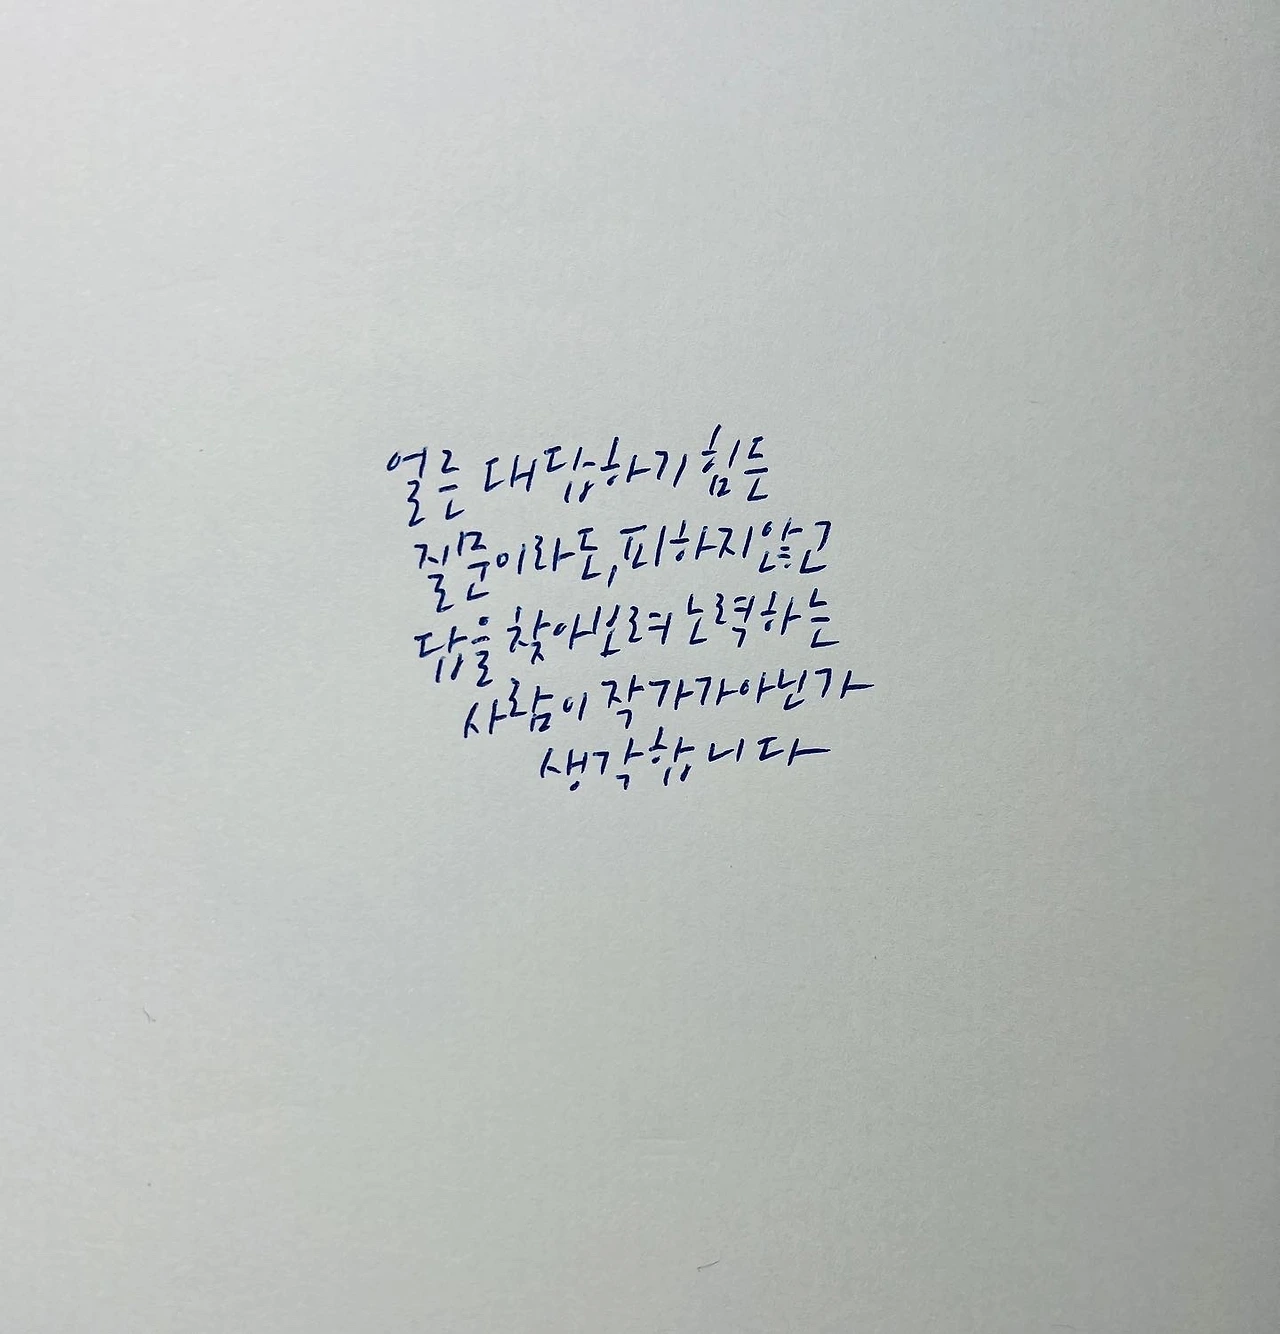 얼른 대답하기 힘든
질문이라도, 피하지 않고
답을 찾아보려 노력하는
사람이 작가가 아닌가
생각합니다